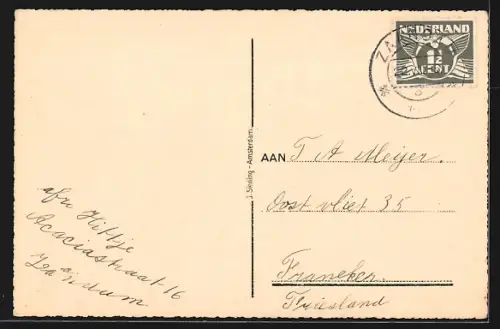 NEDERLAND
1½
CENT
ZA
J. Sleding - Amsterdam
AAN T A Meijer.
Oost vliet 35
Franeker.
Friesland
afz Hittje
Acaciastraat 16
Zaandam